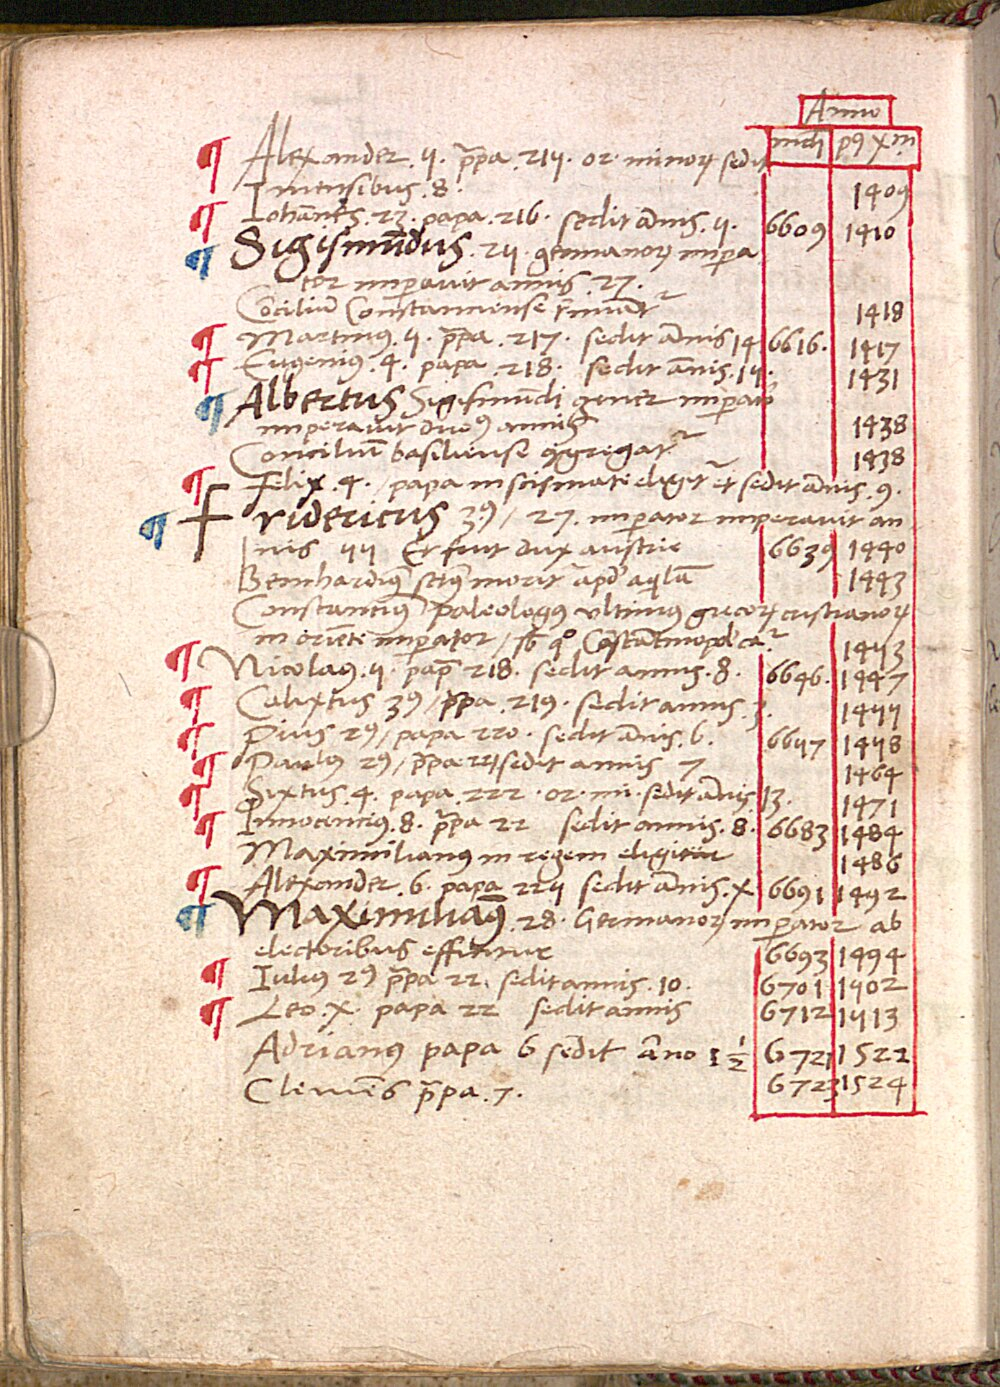 Anno
mūdi p9 xm̄
Alexander .4. p̄pa .214. or. minorꝝ sedit
mensibus .8. 1409
Iohannēs .23. papa .216. sedit ānis .4. 6609 1410
Sigismūdus .24. germanorꝝ impa
tor imperavit annis .27.
Cōciliū Constanniense 1418
Martinus .4. p̄pa .217. sedit ānis 14 6616. 1417
Eugenius .4. papa .218. sedit ānis .14. 1431
Albertus Sigismūdi gener imperatᵒ
imperavit duoꝰ annis 1438
Concilium basiliense ꝯgregat᷑ 1438
Felix .4. papa in scismate eligit᷑ et sedit ānis .9.
Fridericus 3ꝰ / 27. imperator imperavit an
nis 44 Et fuit dux austrie 6639 1440
Bernhardinꝰ sctꝰ morit᷑ apd' aqilā 1443
Constantinꝰ paleologus ultimus grecorꝝ cristianorꝝ
in oriēte imperator / sb qᵒ Cōstātinopol' ca᷑ 1443
Nicolaus .4. pap̄ 218. sedit annis .8. 6646. 1447
Calixtus 3ꝰ / p̄pa .219. sedit annis 3. 1444
Pius 2ꝰ / papa 220. sedit ānis .6. 6647 1448
Paulus 2ꝰ / p̄pa 221 sedit annis 7 1464
Sixtus .4. papa .222. or. mi. sedit ānis 13. 1471
Innocencius .8. p̄pa 22 sedit annis .8. 6683 1484
Maximilianus in regem eligitur 1486
Alexander .6. papa 224 sedit ānis .x 6691 1492
Maximiliaꝰ .28. Germanorꝝ imperator ab
electoribus effititur 6693 1494
Iulius 2ꝰ p̄pa 22. sedit annis .10. 6701 1402
Leo .x. papa 22 sedit annis 6712 1413
Adrianꝰ papa 6 sedit āno 1 ½ 6721 1522
Clemēs p̄pa .7. 6723 1524